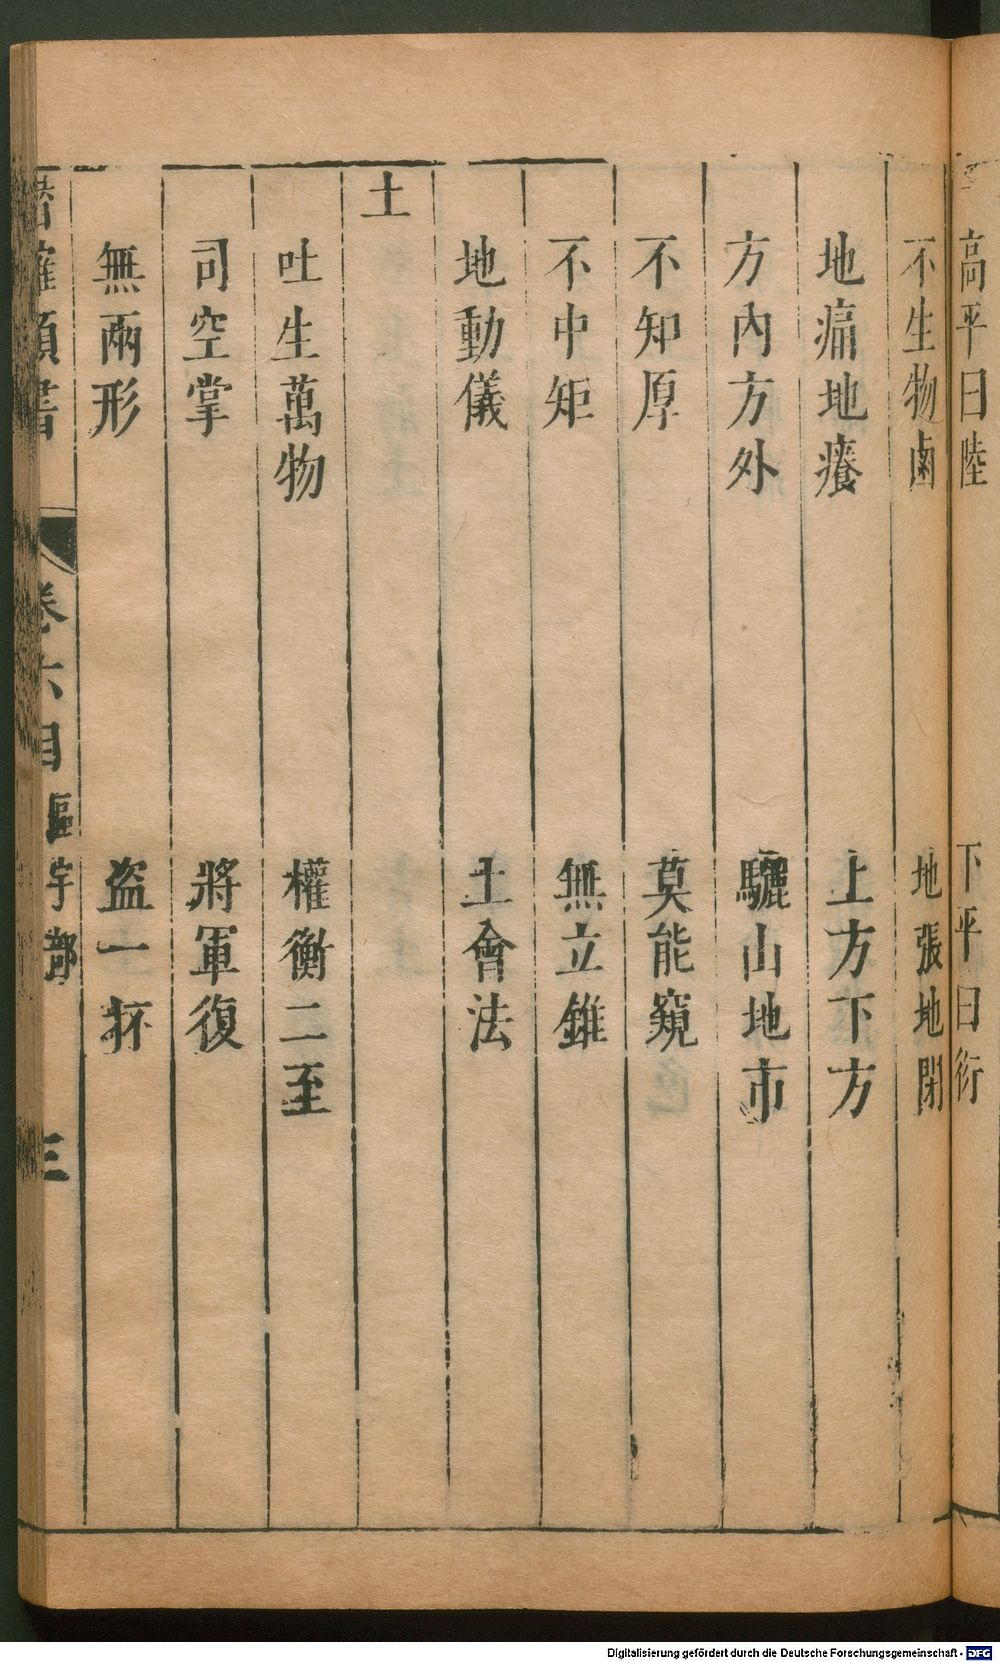 高平曰陸　下平曰衍
不生物鹵　地張地閉
地痛地癢　上方下方
方內方外　驪山地市
不知厚　莫能窺
不中矩　無立錐
地動儀　土會法
土
吐生萬物　權衡二至
司空掌　將軍復
無兩形　盜一抔
潛確類書　卷六目　區宇部　三
Digitalisierung gefördert durch die Deutsche Forschungsgemeinschaft - DFG